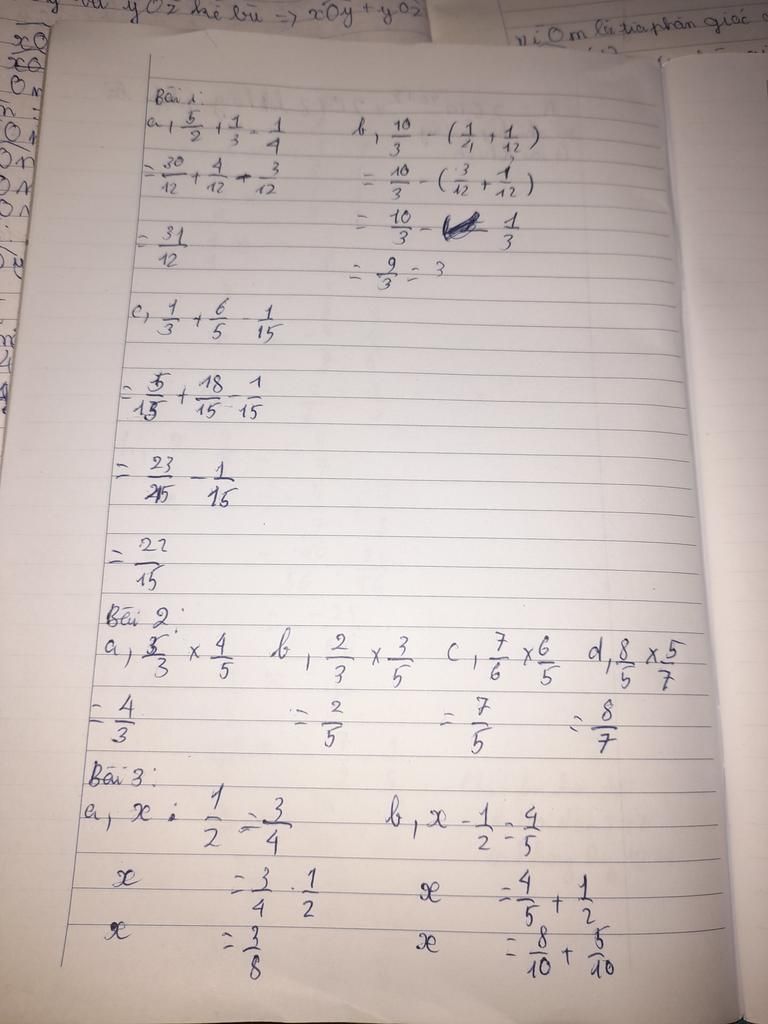 yOz kề bù => xOy + yOz
Om là tia phân giác
Bài 1:
a, 5/2 + 1/3 - 1/4
= 30/12 + 4/12 - 3/12
= 31/12
b, 10/3 - (1/4 + 1/12)
= 10/3 - (3/12 + 1/12)
= 10/3 - 1/3
= 9/3 = 3
c, 1/3 + 6/5 - 1/15
= 5/15 + 18/15 - 1/15
= 23/15 - 1/15
= 22/15
Bài 2:
a, 5/3 x 4/5 b, 2/3 x 3/5 c, 7/6 x 6/5 d, 8/5 x 5/7
= 4/3 = 2/5 = 7/5 = 8/7
Bài 3:
a, x : 1/2 = 3/4 b, x - 1/2 = 4/5
x = 3/4 . 1/2 x = 4/5 + 1/2
x = 3/8 x = 8/10 + 5/10